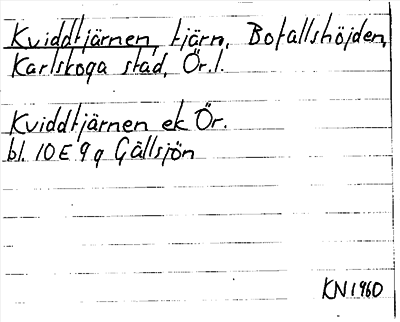 Kviddtjärnen, tjärn, Bofallshöjden,
Karlskoga stad, Ör.l.
Kviddtjärnen ek Ör.
bl. 10E 9g Gällsjön
KN 1960